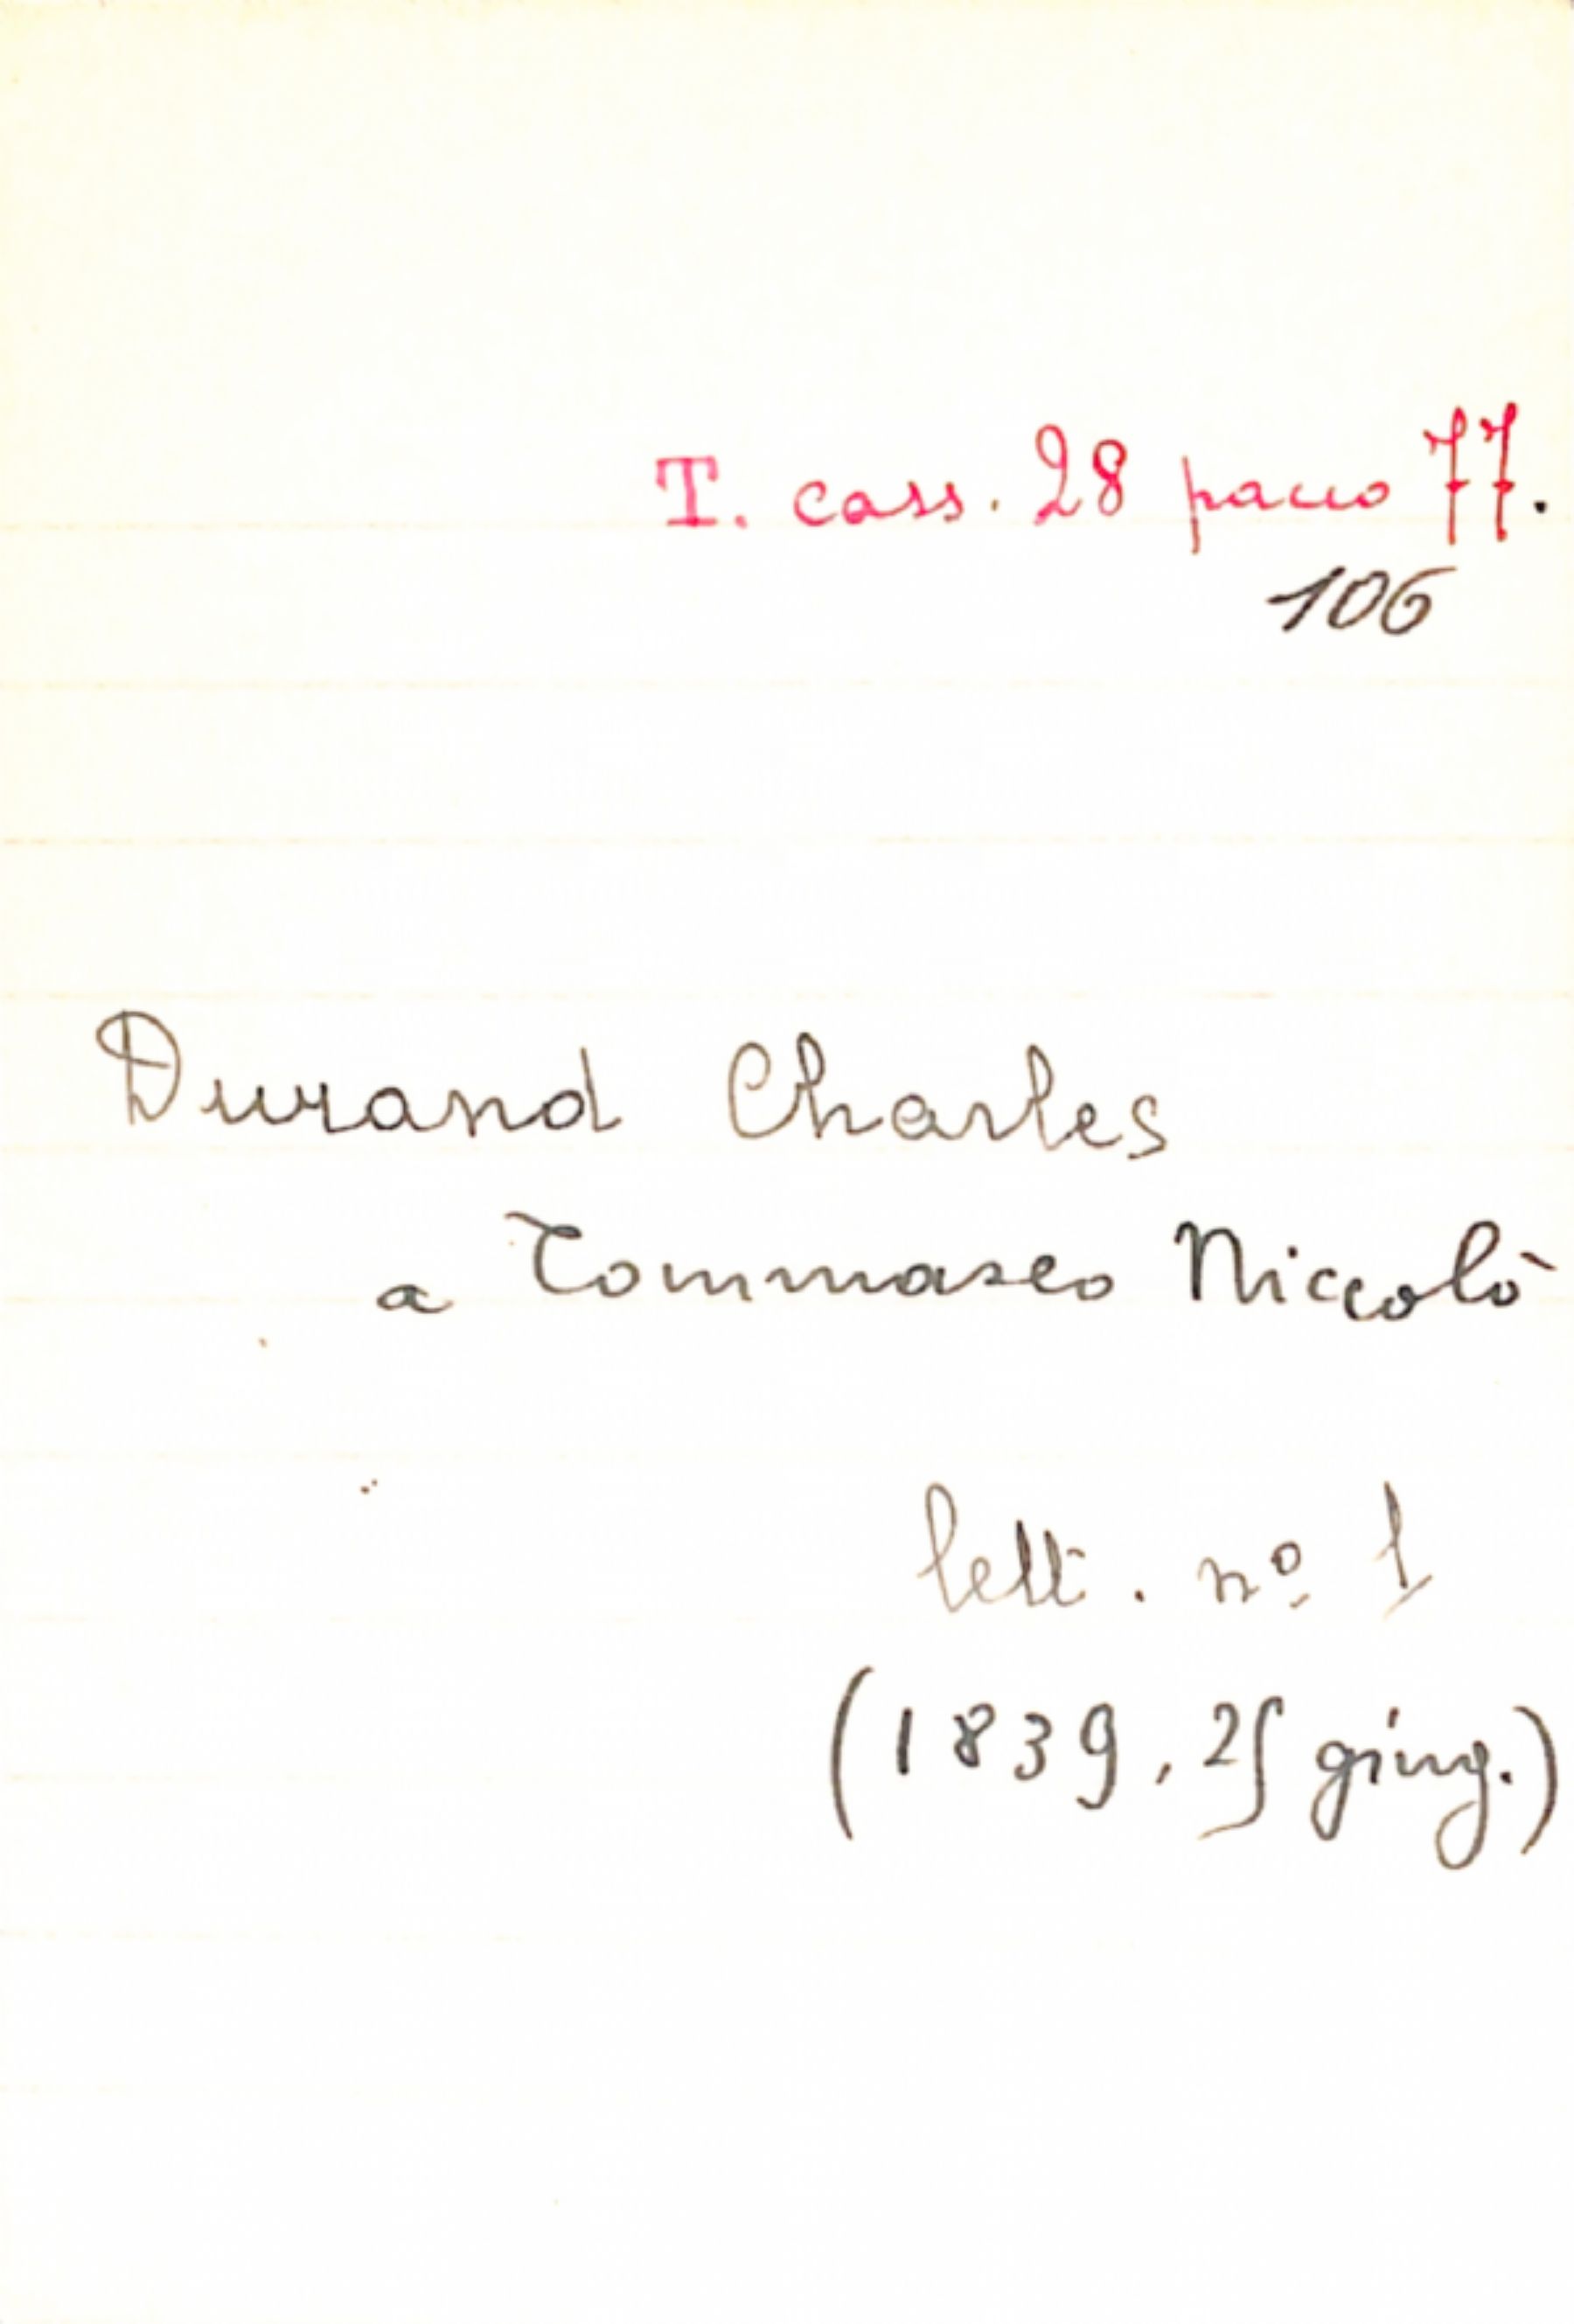 T. cass. 28 pacco 77.
106
Durand Charles
a Tommaseo Niccolò
lett. nº 1
(1839, 25 giug.)